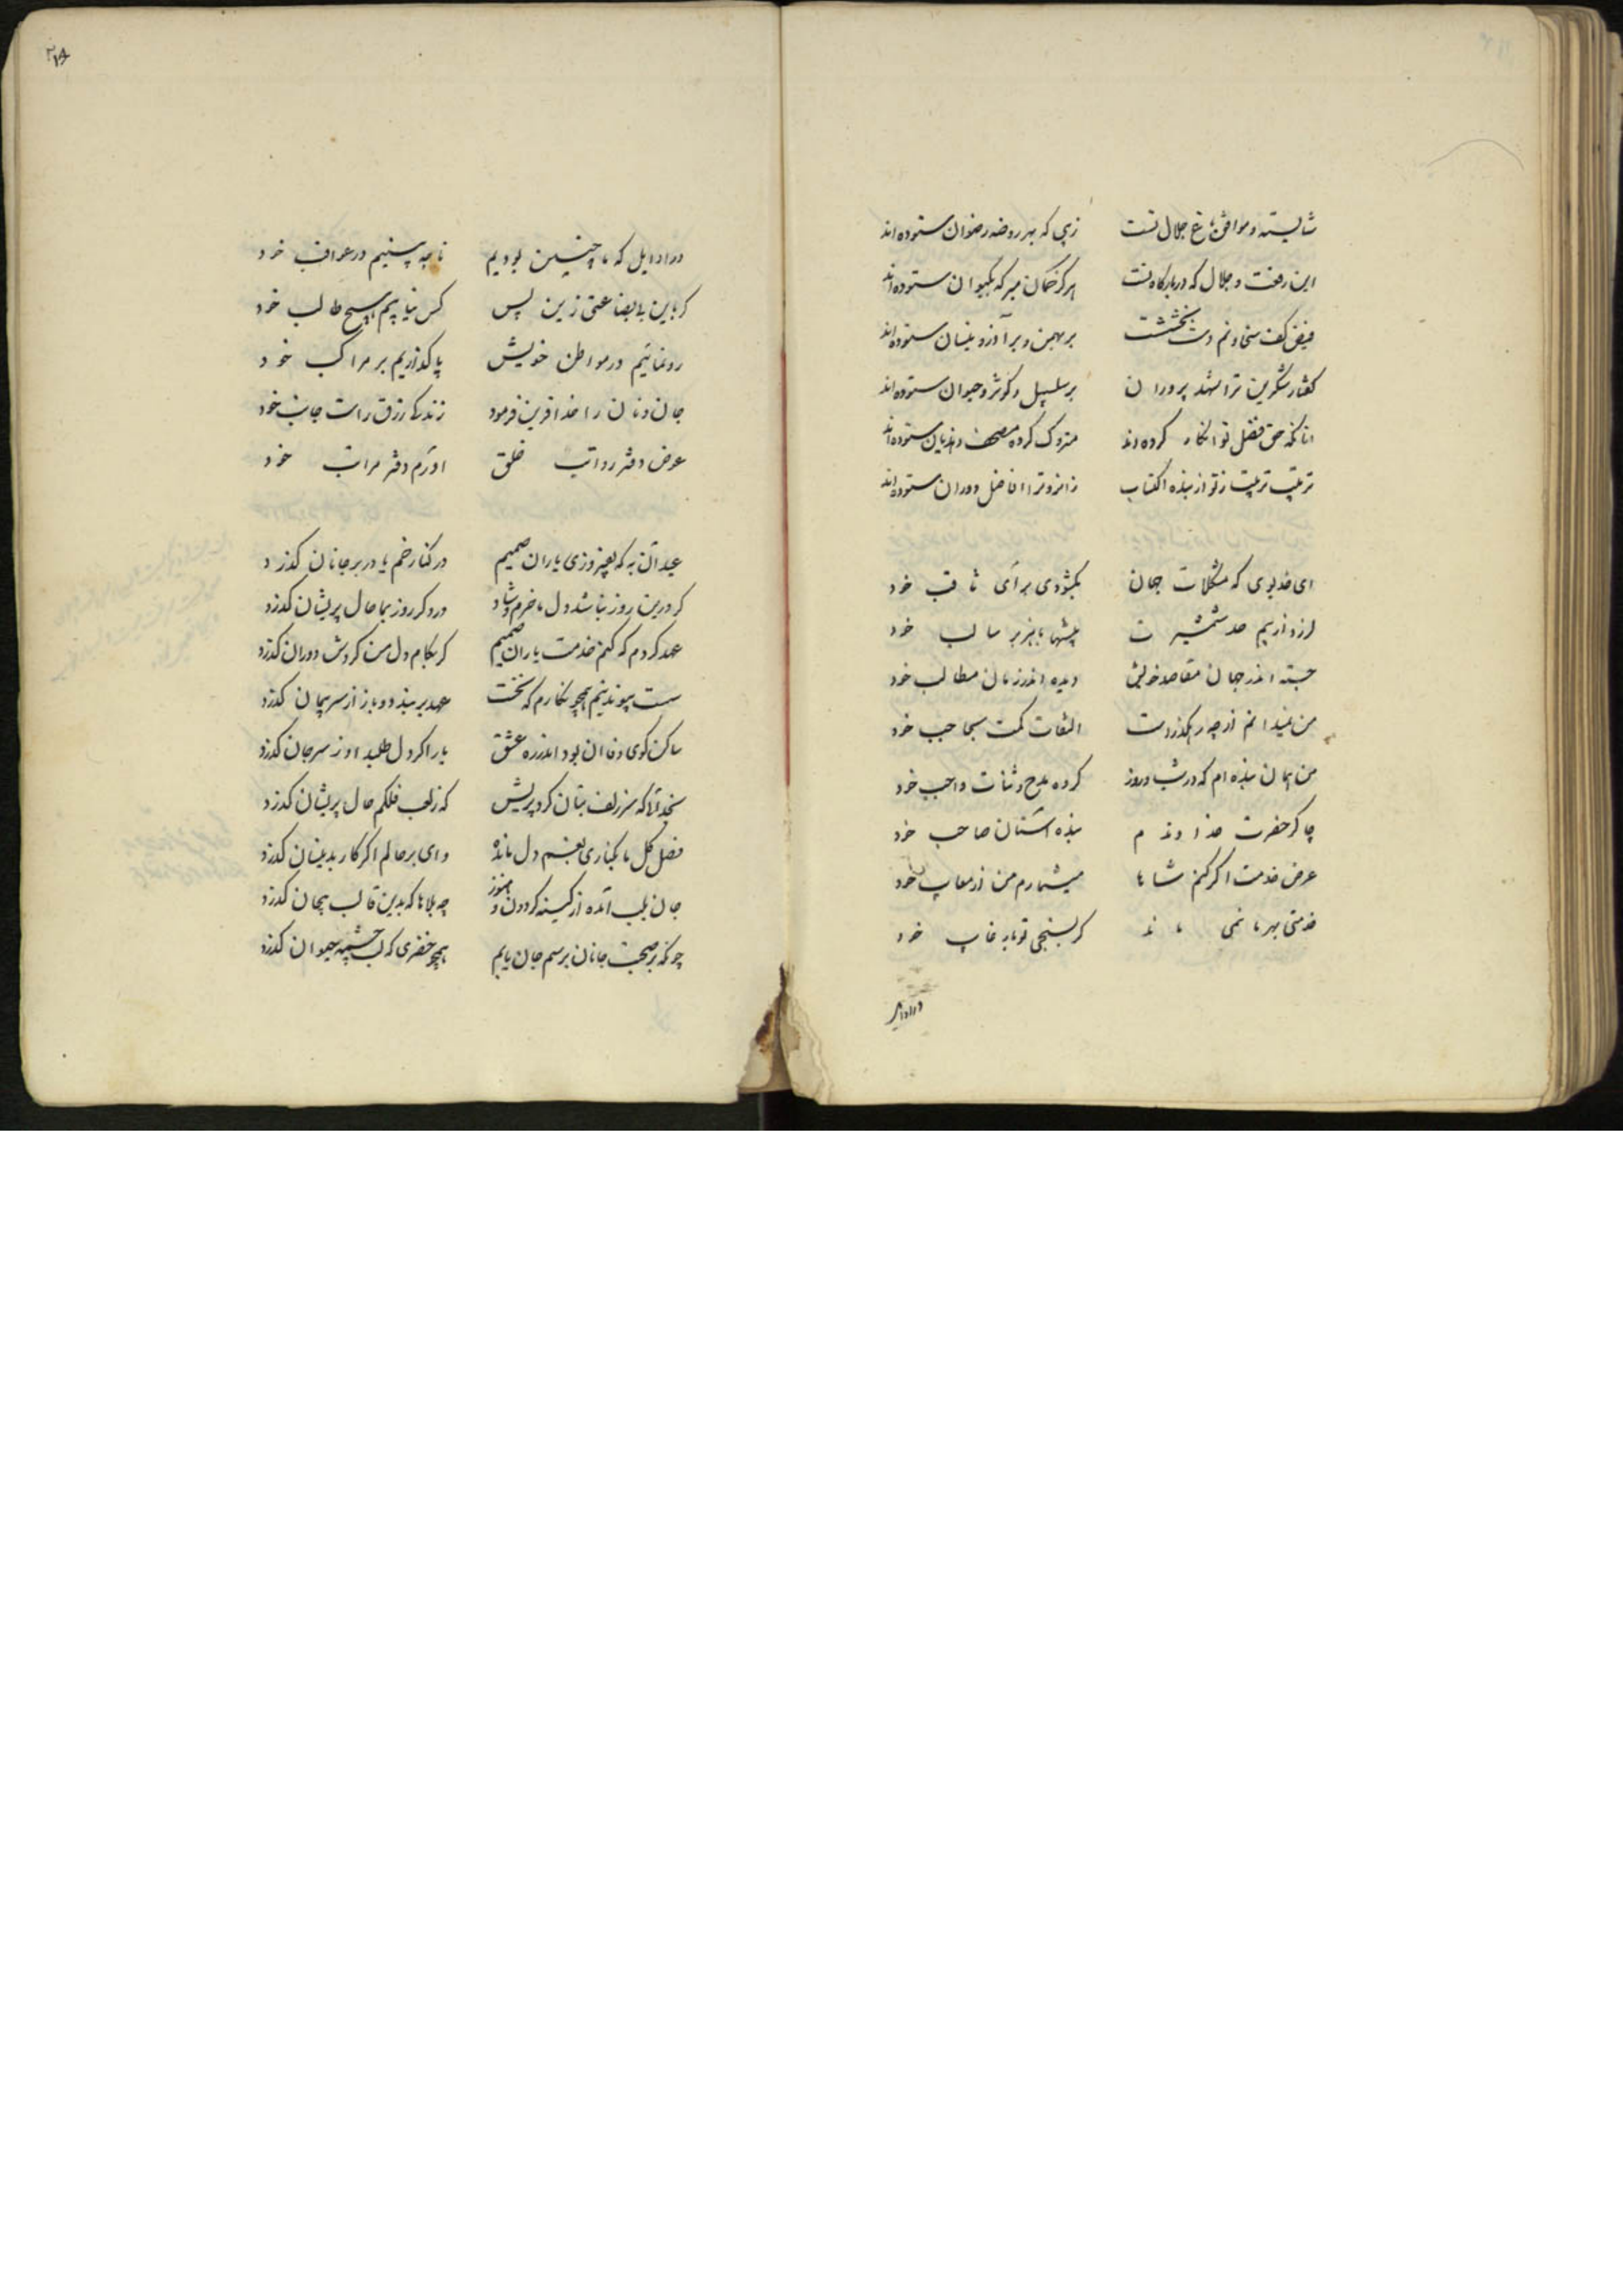 شایسته و موافق باغ جلال تست    زیبی که بهر روضه رضوان ستوده‌اند
این رفعت و جلال که در بارگاه تست    هرگز گمان مبر که بکیوان ستوده‌اند
فیض کف سخا و نم دست بخششت    بر بهمن و بر آذر و نیسان ستوده‌اند
گفتار شکرین ترا شهد پروران    بر سلسبیل و کوثر و حیوان ستوده‌اند
آنانکه حق فضل تو انکار کرده‌اند    متروک کرده مصحف و هذیان ستوده‌اند
ترتیب تربیت ز تو از بنده اکتساب    زانرو ترا افاضل دوران ستوده‌اند
ای خدیوی که مشکلات جهان    بگشودی برای ثاقب خود
لرزد از بیم صد شمشیرت    ببر سالب خود
جسته اندر جهان مقاصد خویش    دیده اندر زمان مطالب خود
من نمیدانم از چه رهگذرست    التفات کمت بحاجب خود
من همان بنده‌ام که در شب و روز    کرده مدح و ثنات واجب خود
چاکر حضرت خداوندم    بنده آستان صاحب خود
عرض خدمت اگر کنم شاها    میشمارم من از معایب خود
خدمتی بهر ما نمی ماند    گر بسنجی تو با رغایب خود
در اوایل
۲۱۸
در اوایل که ما چنین بودیم    تا چه بینیم در عواقب خود
گر باین بی بضاعتی زین پس    کس نیابیم هیچ طالب خود
رو نمائیم در مواطن خویش    پا گذاریم بر مراکب خود
جان و نان را خدا قرین فرمود    زندگی رزق راست جانب خود
عرض دفتر رواتب خلق    آورم دفتر مراتب خود
عید آن به که بفیروزی یاران صمیم    در کنار خم یا در بر جانان گذرد
گر درین روز نباشد دل ما خرم و شاد    درد گر روز بما حال پریشان گذرد
عهد کردم که کنم خدمت یاران صمیم    گر بکام دل من گردش دوران گذرد
سست پیوند نیم همچو نگارم که نخست    عهد بر بندد و باز از سر پیمان گذرد
ساکن کوی وفا آن بود اندر ره عشق    یار اگر دل طلبد او ز سر جان گذرد
بخدائیکه سر زلف بتان کرد پریش    که ز لعب فلکم حال پریشان گذرد
فصل گل ما بکناری بغم دل مانده    وای بر حالم اگر کار بدینسان گذرد
جان بلب آمده از کینه گردون و هنوز    چه بلاها که بدین قالب بیجان گذرد
چونکه بر صحبت جانان برسم جان یابم    همچو خضری که لب چشمه حیوان گذرد